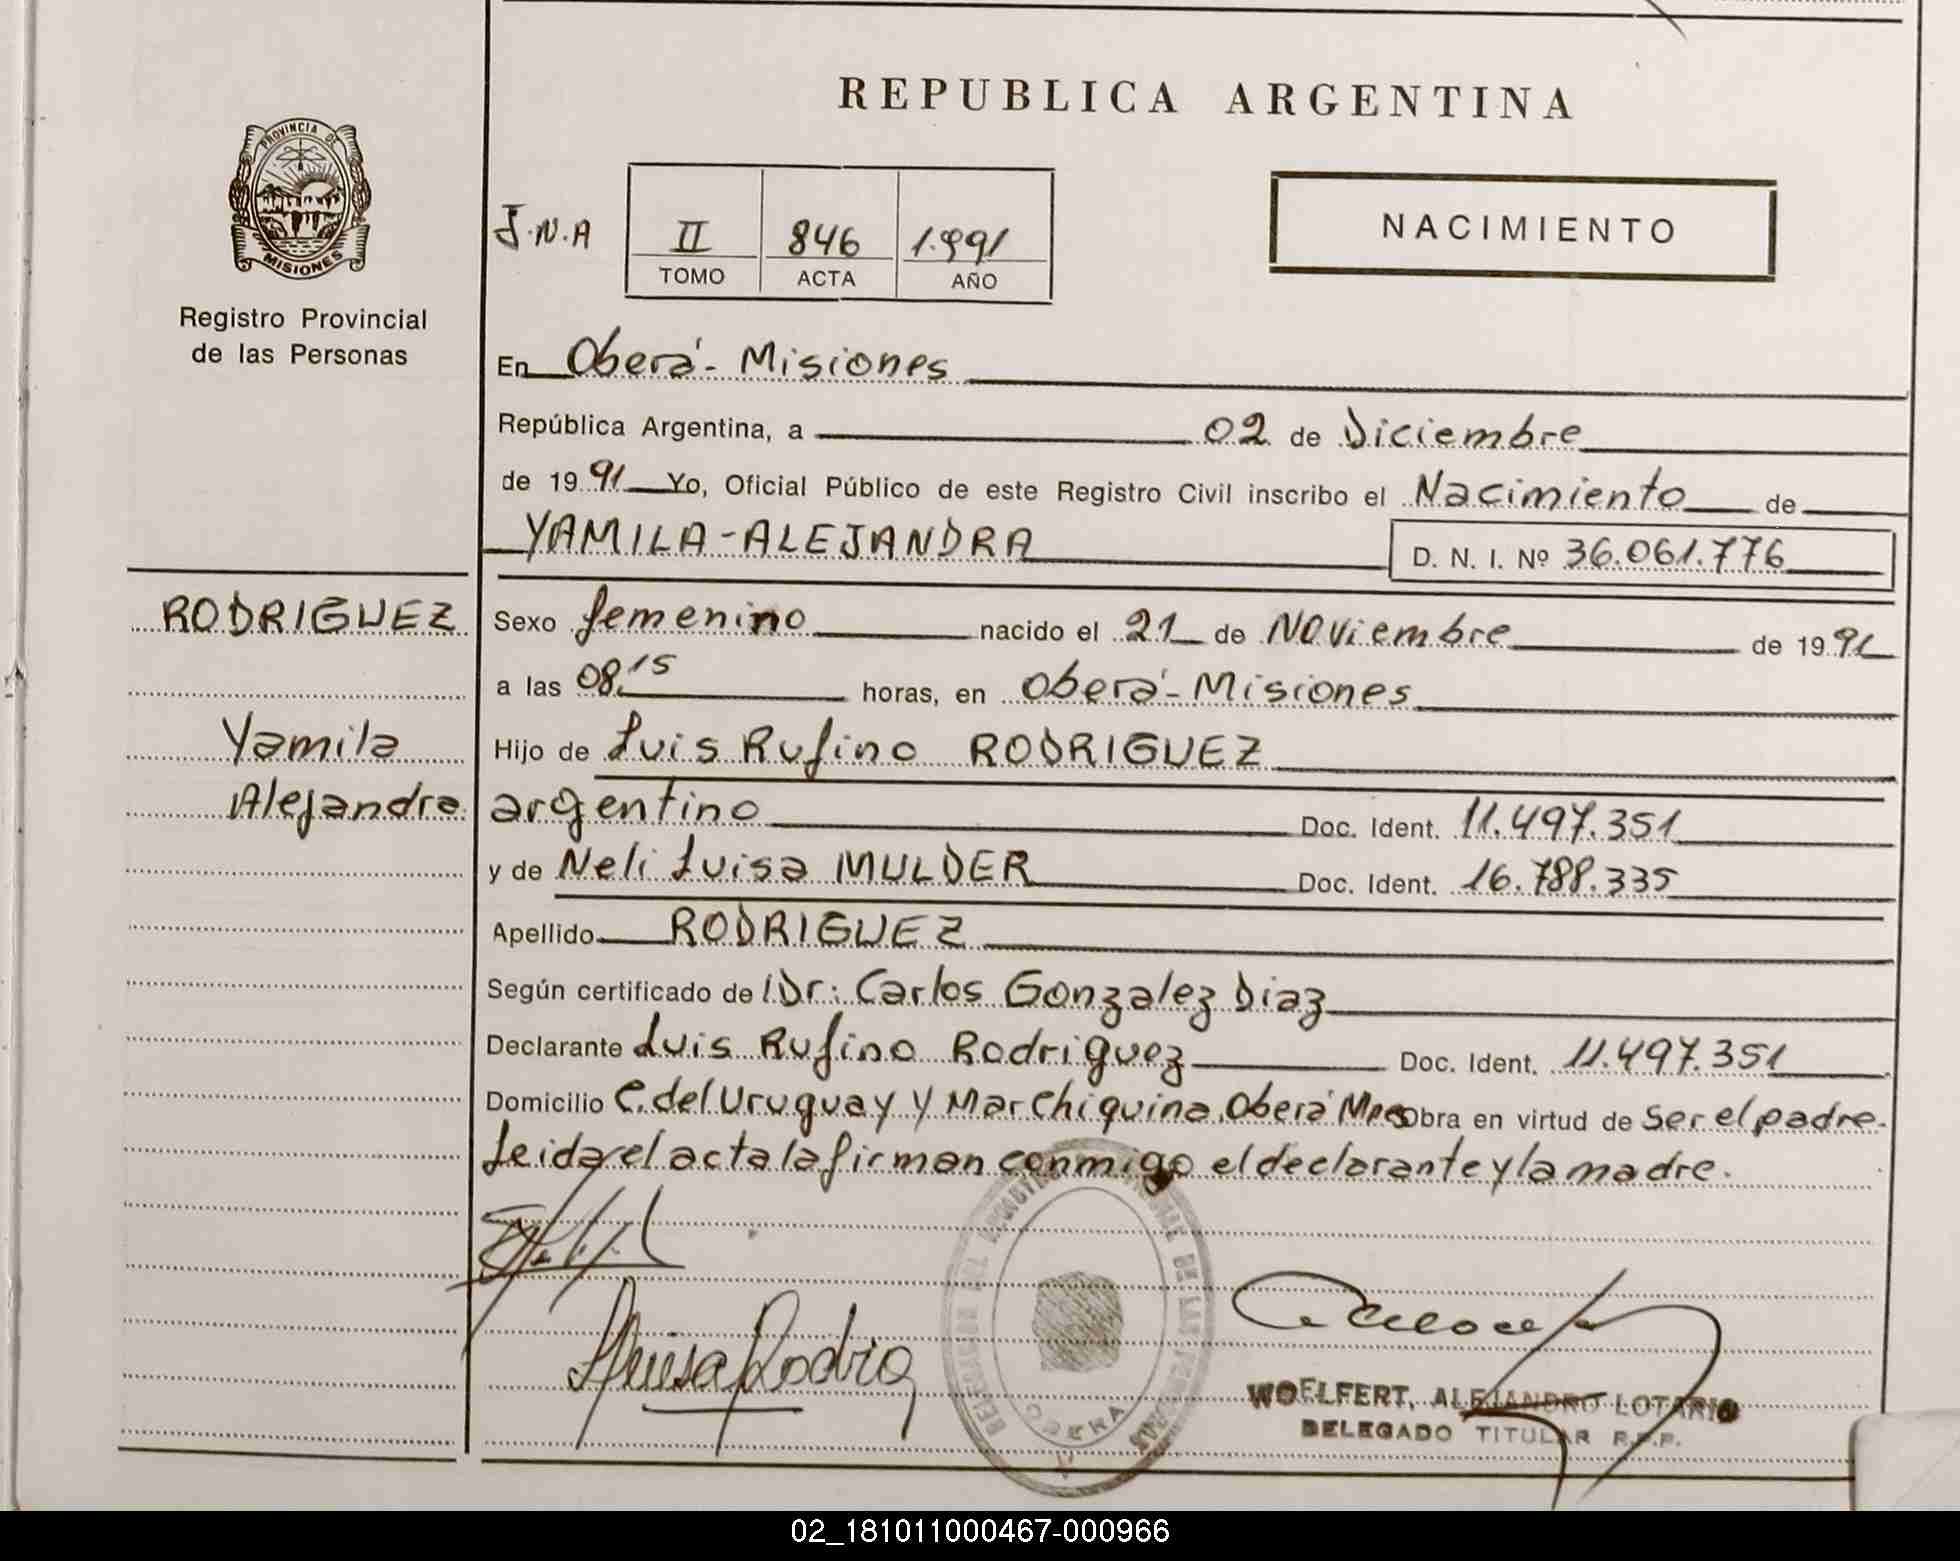 REPUBLICA ARGENTINA
PROVINCIA DE
MISIONES
Registro Provincial
de las Personas
J.N.A
II 846 1.991
TOMO ACTA AÑO
NACIMIENTO
En Oberá - Misiones
República Argentina, a 02 de Diciembre
de 1991 Yo, Oficial Público de este Registro Civil inscribo el Nacimiento de
YAMILA-ALEJANDRA D. N. I. Nº 36.061.776
RODRIGUEZ
Yamila
Alejandra
Sexo femenino nacido el 21 de Noviembre de 1991
a las 08,15 horas, en Oberá - Misiones
Hijo de Luis Rufino RODRIGUEZ
argentino Doc. Ident. 11.497.351
y de Neli Luisa MULDER Doc. Ident. 16.788.335
Apellido RODRIGUEZ
Según certificado de Dr: Carlos Gonzalez Diaz
Declarante Luis Rufino Rodriguez Doc. Ident. 11.497.351
Domicilio C. del Uruguay y Marchiquina, Oberá Mnes Obra en virtud de Ser el padre.
Leida el acta la firman conmigo el declarante y la madre.
DE LAS
OBERA
WOELFERT, ALEJANDRO LOTARIO
DELEGADO TITULAR R.P.P.
02_181011000467-000966